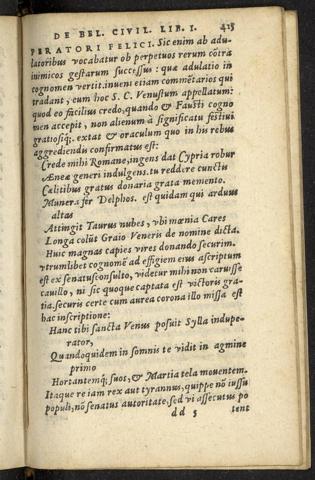 DE BEL. CIVIL. LIB. I. 425
PERATORI FELICI. Sic enim ab adu-
latoribus vocabatur ob perpetuos rerum cōtra
inimicos gestarum successus: quæ adulatio in
cognomen vertit. inveni etiam commētarios qui
tradant, eum hoc S. C. Venustum appellatum:
quod eo facilius credo, quando & Fausti cogno
men accepit, non alienum à significatu festivi
gratiosiq́;. extat & oraculum quo in his rebus
aggrediendis confirmatus est:
Crede mihi Romane, ingens dat Cypria robur
Æneæ generi indulgens. tu reddere cunctis
Cælitibus gratus donaria grata memento.
Munera fer Delphos. est quidam qui arduus
altas
Attingit Taurus nubes, vbi mœnia Cares
Longa colūt Graio Veneris de nomine dicta.
Huic magnas capies vires donando securim.
vtrumlibet cognomē ad effigiem eius ascriptum
est ex senatusconsulto, videtur mihi non caruisse
cavillo, ni sic quoque captata est victoris gra-
tia. securis certe cum aurea corona illo missa est
hac inscriptione:
Hanc tibi sancta Venus posuit Sylla indupe-
rator,
Quandoquidem in somnis te vidit in agmine
primo
Hortantemq́; suos, & Martia tela moventem.
Itaque re iam rex aut tyrannus, quippe nō iussu
populi, nō senatus autoritate, sed vi assecutus po
dd 5 tent